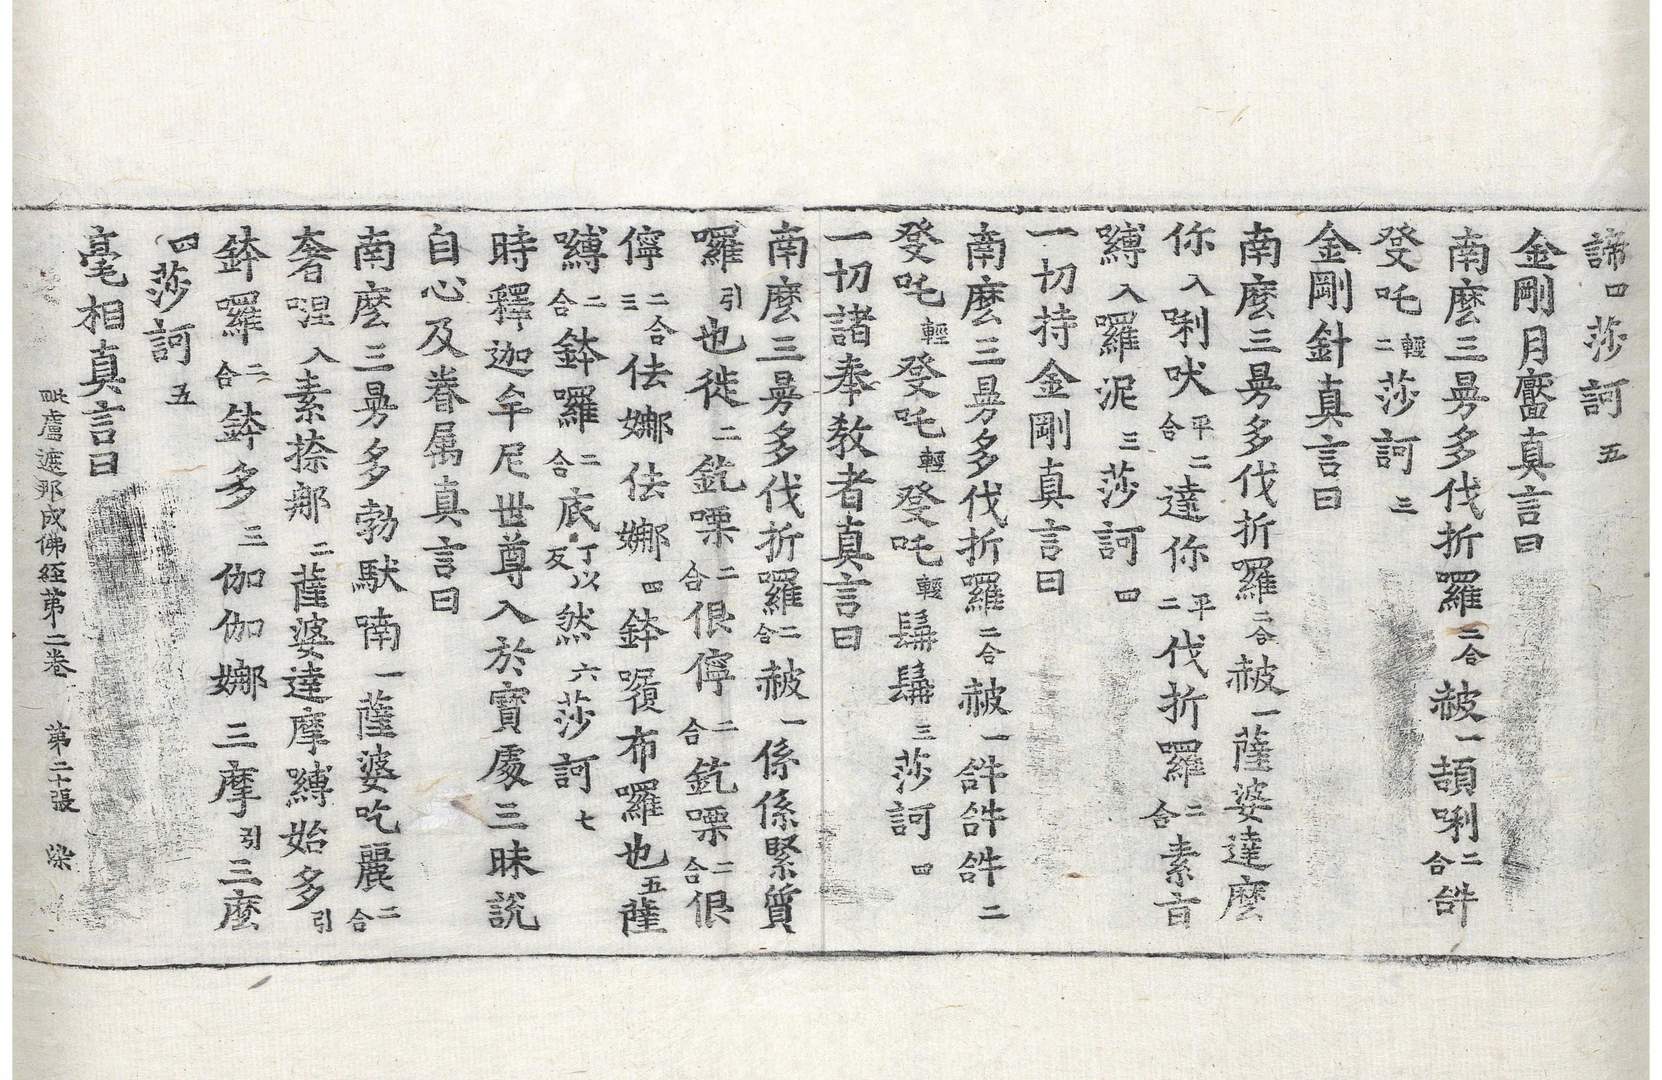 諦四莎訶五
金剛月黶真言曰
南麼三曼多伐折囉二合赧一頡唎二合𤙖
發吒輕二莎訶三
金剛針真言曰
南麼三曼多伐折囉二合赧一薩婆達麼
你入唎吠平二合達你平二伐折囉二合素旨
嚩入囉泥三莎訶四
一切持金剛真言曰
南麼三曼多伐折囉二合赧一𤙖𤙖𤙖二
發吒輕發吒輕發吒輕髯髯三莎訶四
一切諸奉教者真言曰
南麼三曼多伐折囉二合赧一係係緊質
囉引也徙二釳㗚二合佷儜二合釳㗚二合佷
儜二合三佉娜佉娜四鉢囉布囉也五薩
嚩二合鉢囉二合底丁以反然六莎訶七
時釋迦牟尼世尊入於寶處三昧說
自心及眷屬真言曰
南麼三曼多勃馱喃一薩婆吃麗二合
奢涅入素捺那二薩婆達摩嚩始多引
鉢囉二合鉢多三伽伽娜三摩引三麼
四莎訶五
毫相真言曰
毗盧遮那成佛經第二卷 第二十張 梁